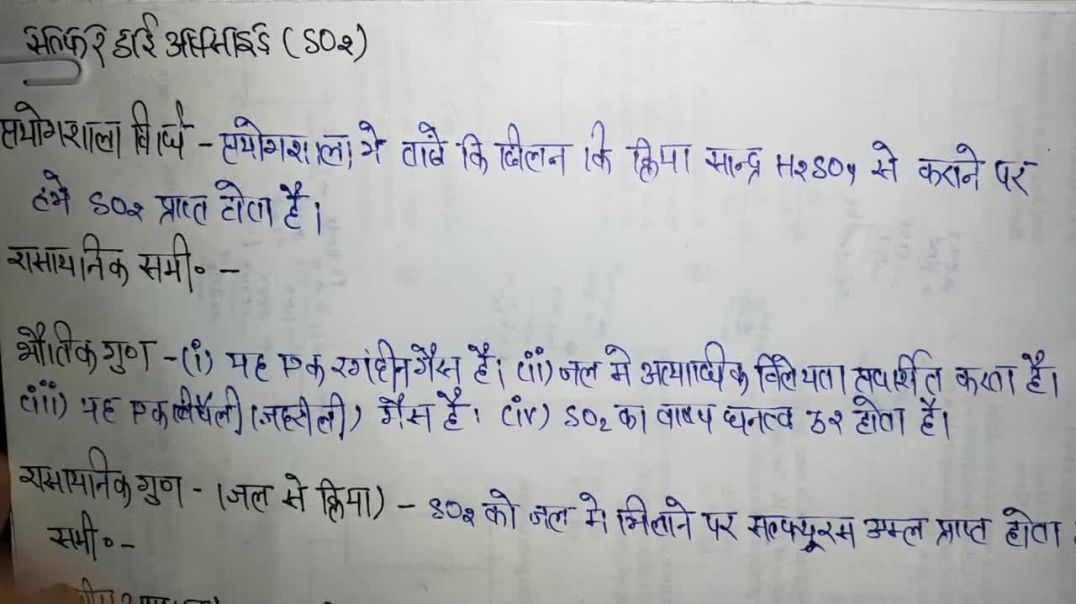 सल्फर डाई ऑक्साइड (SO2)
प्रयोगशाला विधि - प्रयोगशाला मे तांबे कि छीलन कि क्रिया सान्द्र H2SO4 से कराने पर
हमे SO2 प्राप्त होता है।
रासायनिक समी॰ -
भौतिक गुण - (i) यह एक रंगहीन गैस है। (ii) जल मे अत्याधिक विलेयता प्रदर्शित करता है।
(iii) यह एक विषैली (जहरीली) गैस है। (iv) SO2 का वाष्प घनत्व 32 होता है।
रासायनिक गुण - (जल से क्रिया) - SO2 को जल मे मिलाने पर सल्फ्यूरस अम्ल प्राप्त होता
समी॰ -